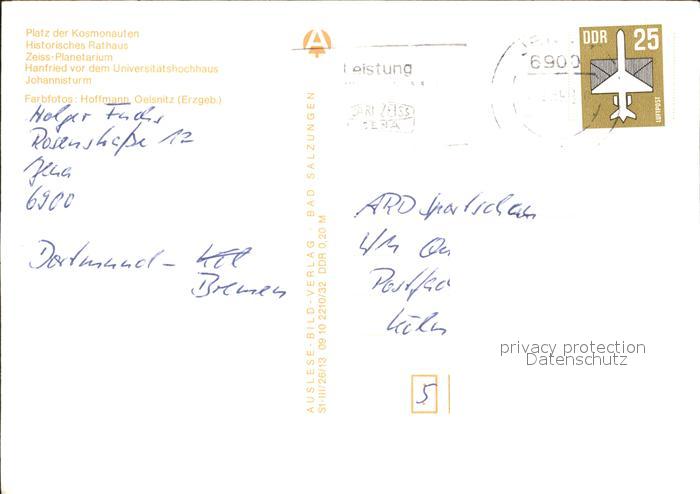 Platz der Kosmonauten
Historisches Rathaus
Zeiss-Planetarium
Hanfried vor dem Universitätshochhaus
Johannisturm
Farbfotos: Hoffmann, Oelsnitz (Erzgeb.)
Holger Fuchs
Rosenstraße 12
Jena
6900
Dortmund – Köl
Bremen
AUSLESE-BILD-VERLAG · BAD SALZUNGEN
St-III/26/13 09 10 2210/32 DDR 0,20 M
A
Leistung
ZEISS
JENA
6900
DDR 25
LUFTPOST
ARD Sportschau
Postfach
Köln
5
privacy protection
Datenschutz